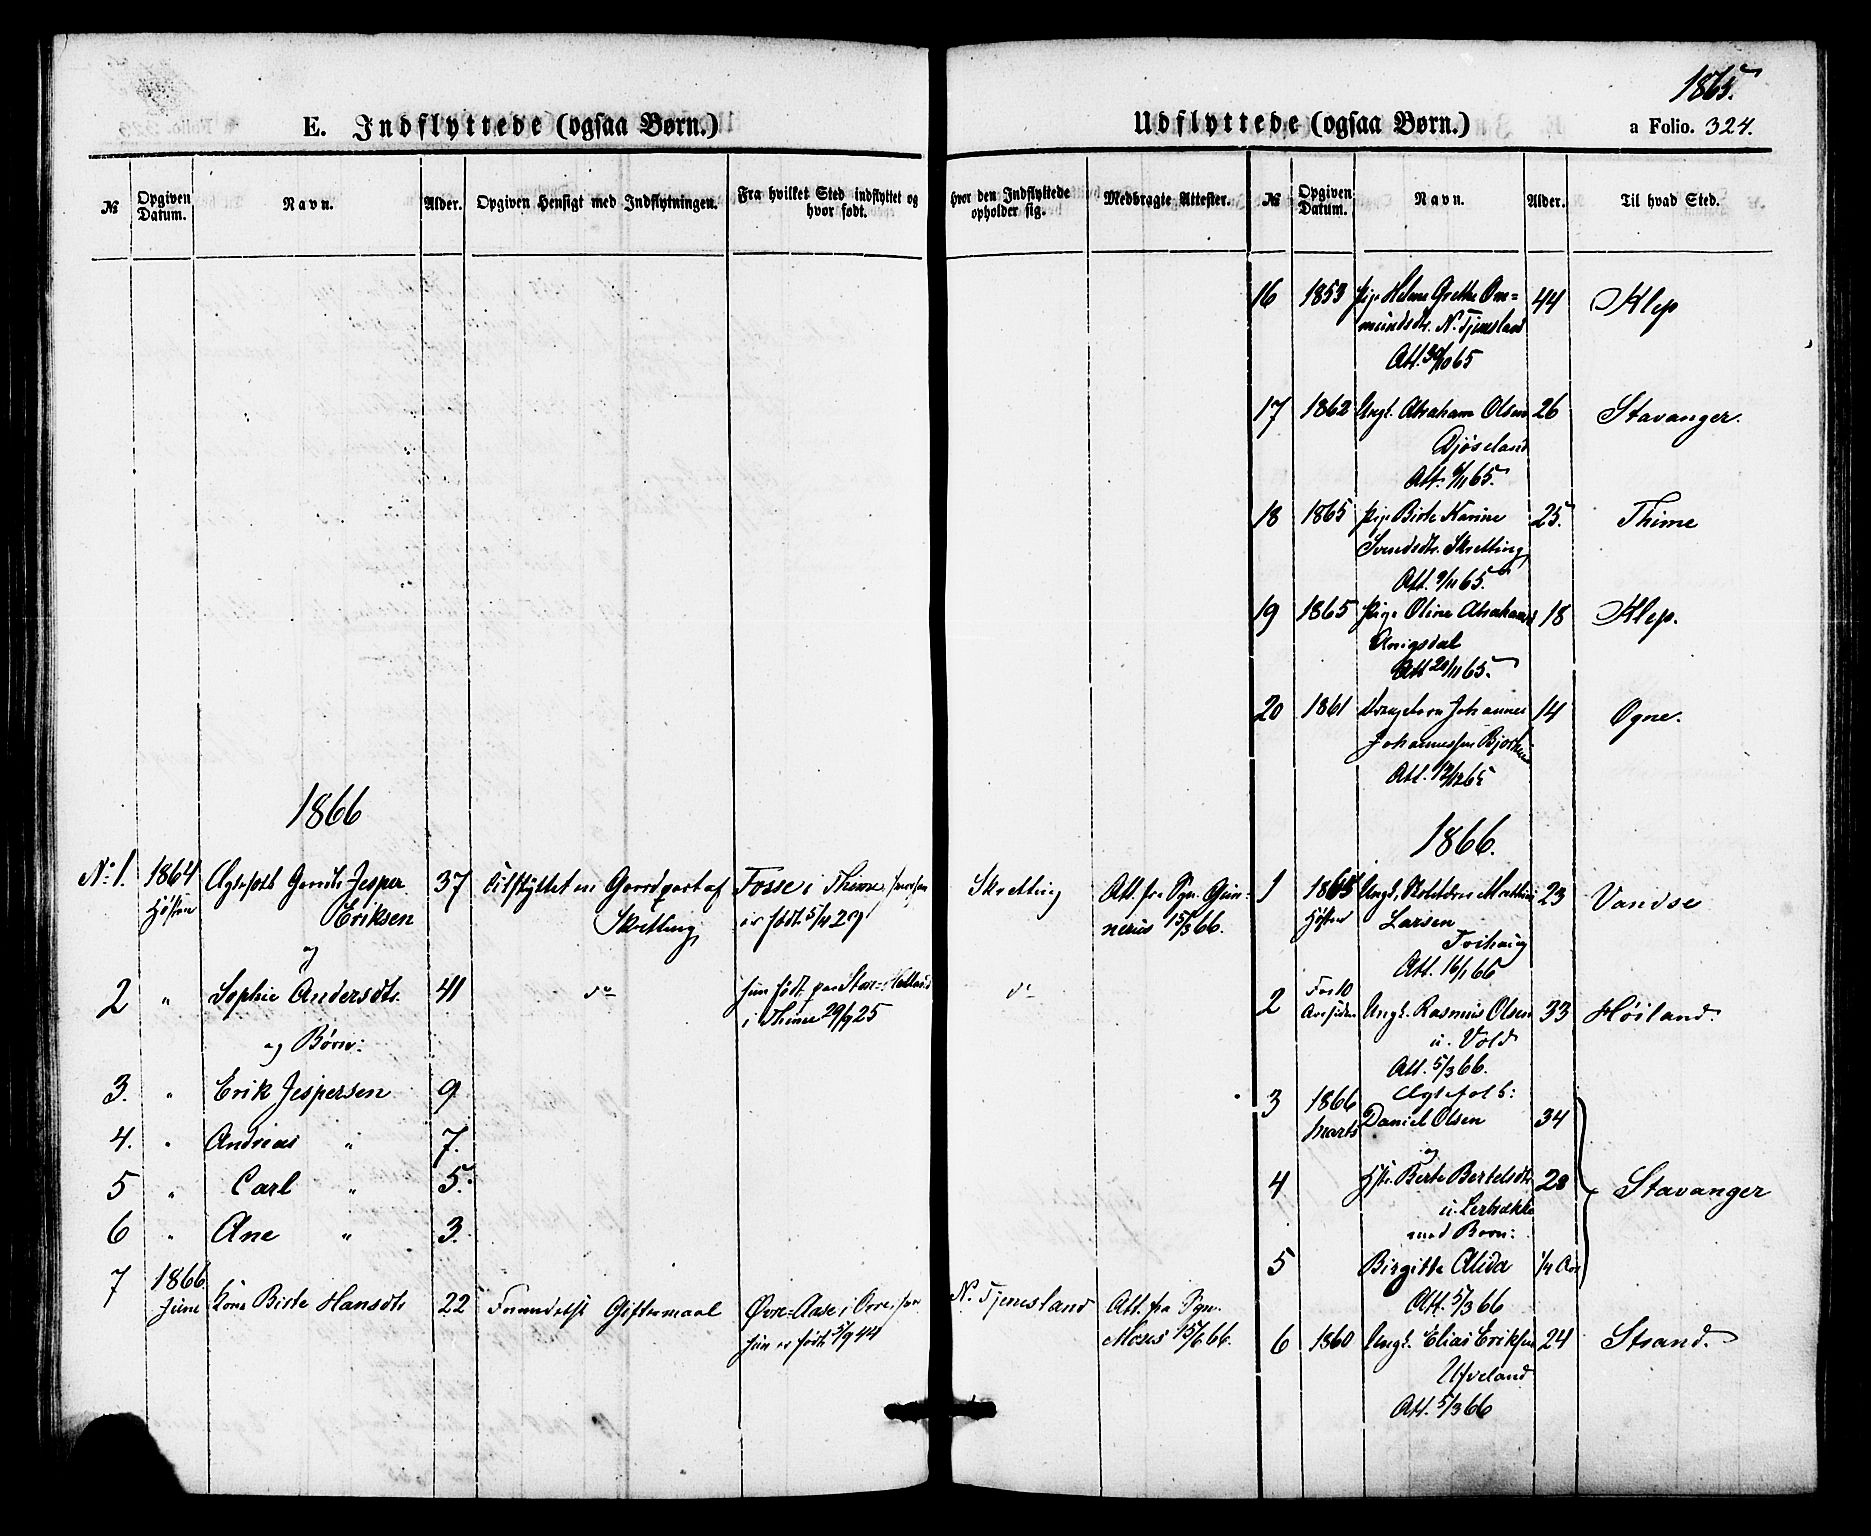 E. Indflyttede (ogsaa Børn.)
№
Opgiven Datum.
Navn.
Alder.
Opgiven Hensigt med Indflytningen.
Fra hvilket Sted indflyttet og hvor født.
1866
No 1. 1864 Høsten
Jesper
Eriksen
37
Gaardpart af
Skretting
Fosse i Thime
er født 5/4 29
og
2 " Sophie Andersdtr. 41 do
hun født paa
i Thime 29/9 25
og Børn:
3. " Erik Jespersen 9
4. " Andreas " 7.
5 " Carl " 5.
6 " Ane " 3.
7 1866 Juni
Kone Birte Hansdtr 22
Giftermaal
Øvre-Aase i
hun er født 5/9 44
1865.
Udflyttede (ogsaa Børn.)
a Folio. 324.
hvor den Indflyttede opholder sig.
Medbragte Attester.
№
Opgiven Datum.
Navn.
Alder.
Til hvad Sted.
16 1853 Pige Helene Grethe Om=
mundsdtr. N. Tjensland
44 Klep
Att. 30/10 65
17 1862 Ungk. Abraham Olsen 26 Stavanger.
Att. 65.
18 1865 Pige Birte Karine 25. Thime
Svendsdtr. Skretting
Att. 9/11 65.
19 1865 Pige Oline Abrahamsd 18 Klep.
Anigsdal
Att 65.
20 1861 Johannes 14 Ogne.
Johannessen
Att. 65
1866.
Skretting
Att. fra Sgn. Gun=
nerius 15/3 66.
1 1865 Høsten
Ungk.
Larsen
23 Vandse
Att. 16/1 66
do
2 For 10 Aar siden
Ungk. Rasmus Olsen 33 Høiland.
Att. 5/3 66.
3 1866 Marts
Ægtefolk:
Daniel Olsen 34
og
4 Hstr. Berte Bertelsdtr 28
med Børn:
Stavanger
5 Birgitte Alida 1/4 Aar
Att. 5/3 66
N. Tjensland
Att. fra Sgn.
Moses 15/6 66.
6 1860 Ungk. Elias Eriksen 24 Strand.
Ueland
Att. 5/3 66